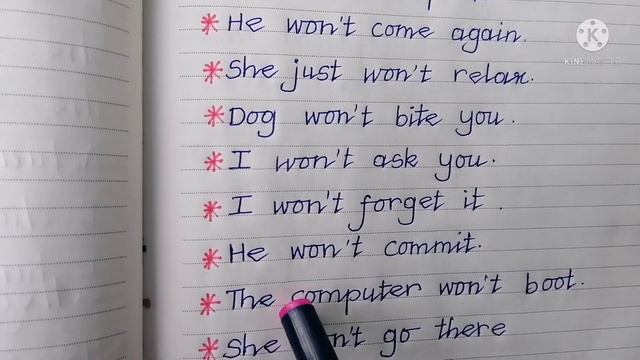 * He won't come again.
* She just won't relax.
* Dog won't bite you.
* I won't ask you.
* I won't forget it.
* He won't commit.
* The computer won't boot.
* She go there
KINEMASTER